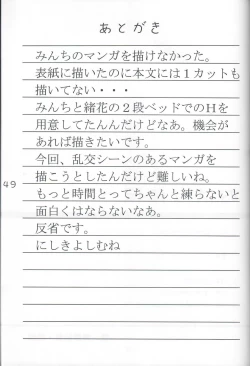 あとがき
みんちのマンガを描けなかった。
表紙に描いたのに本文には１カットも
描いてない・・・
みんちと緒花の２段ベッドでのＨを
用意してたんだけどなあ。機会が
あれば描きたいです。
今回、乱交シーンのあるマンガを
描こうとしたんだけど難しいね。
もっと時間とってちゃんと練らないと
面白くはならないなあ。
反省です。
にしきよしむね
49